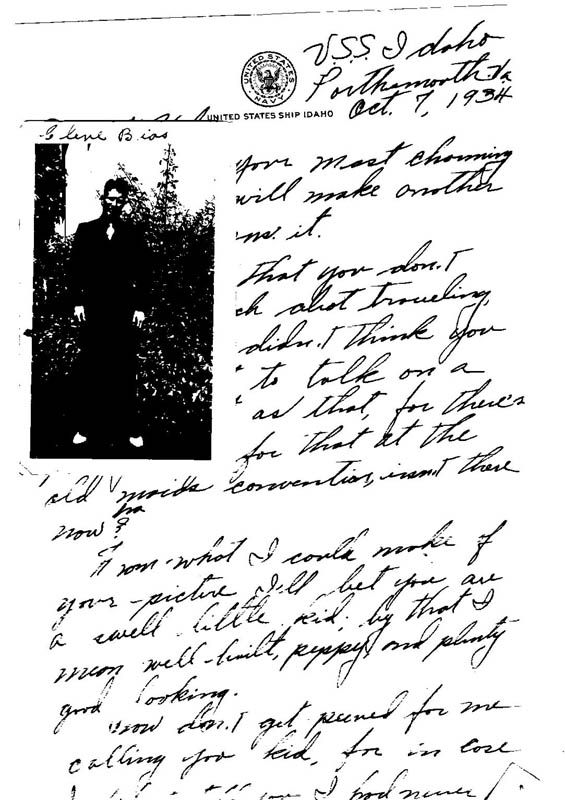 UNITED STATES
NAVY
U.S.S. Idaho
Porthsmouth. Va
Oct. 7, 1934
UNITED STATES SHIP IDAHO
Bias
your most charming
will make another
it.
that you don.t
ch abot traveling,
didn.t think you
to talk on a
as that, for there's
for that at the
old maids convention, isn.t there
now?
From what I could make of
your picture I'll bet you are
a swell little kid; by that I
mean well-built, peppy, and plenty
good looking.
Now don.t get peeved for me
calling you kid, for in case
you I had never